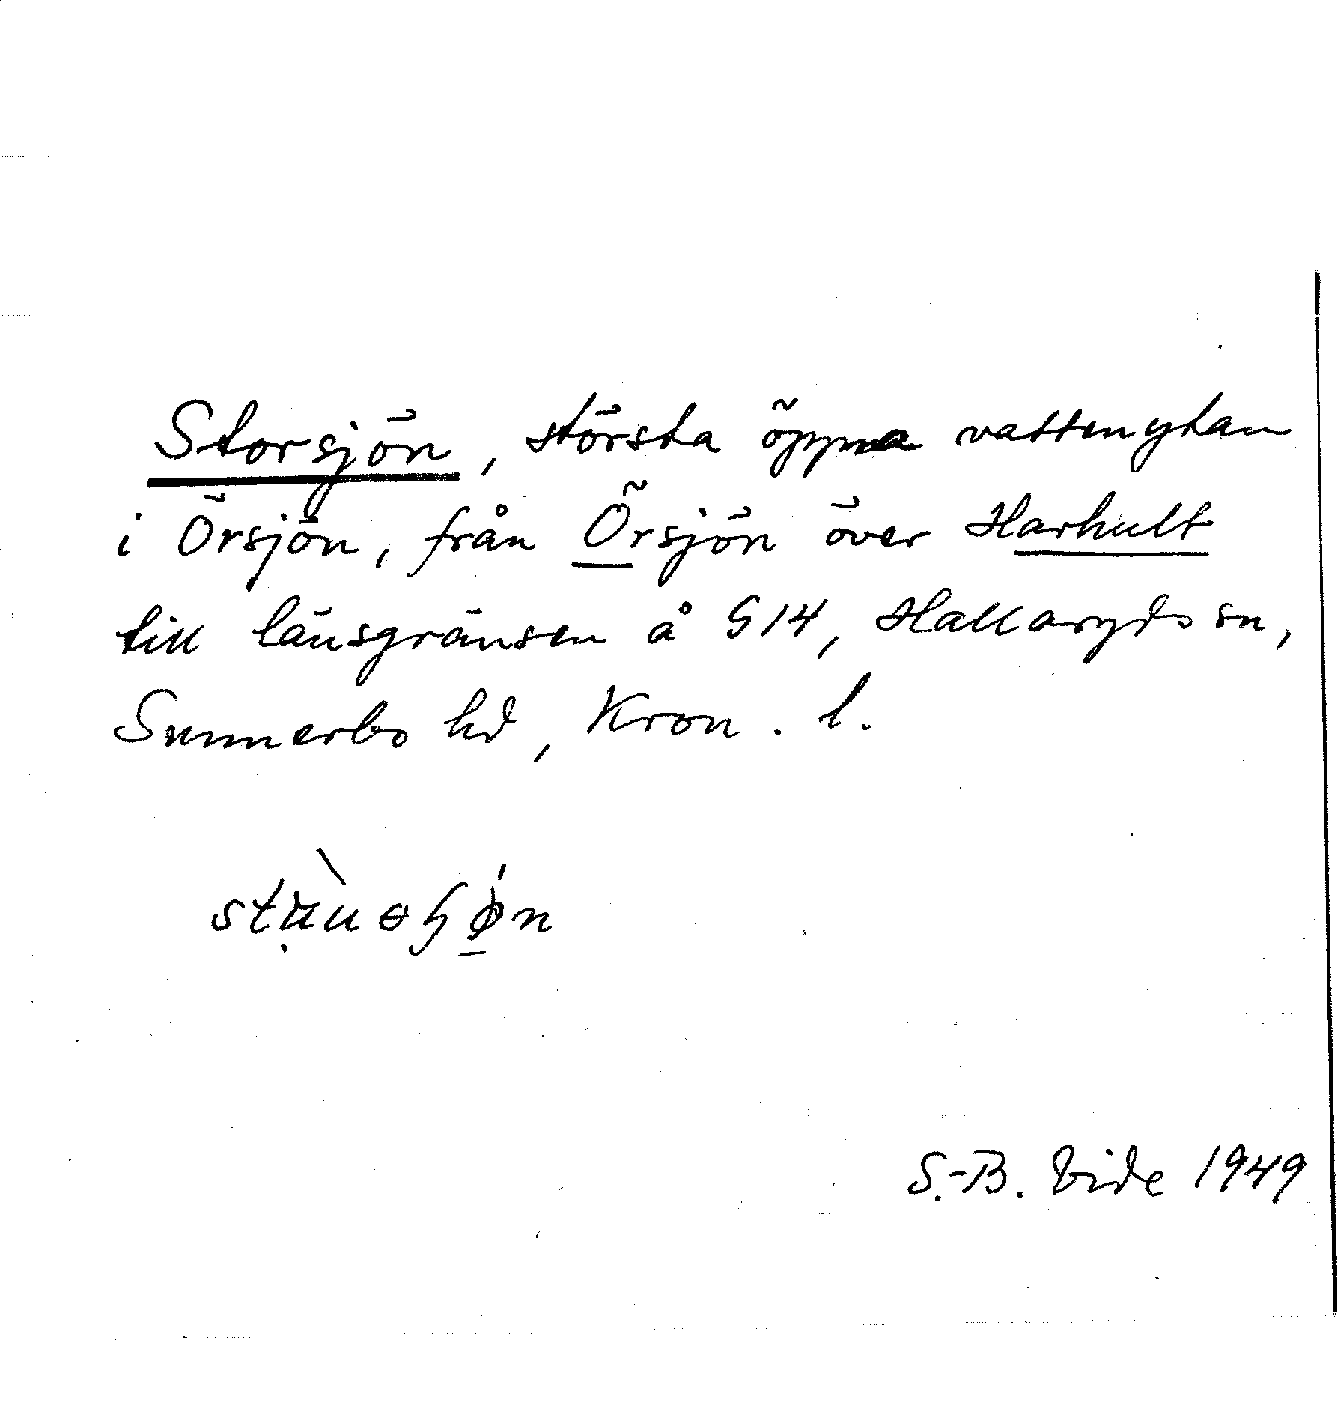 Storsjön, största öppna vattenytan
i Örsjön, från Örsjön över Harhult
till länsgränsen å S14, Hallaryds sn,
Sunnerbo hd, Kron. l.
S.-B. Vide 1949